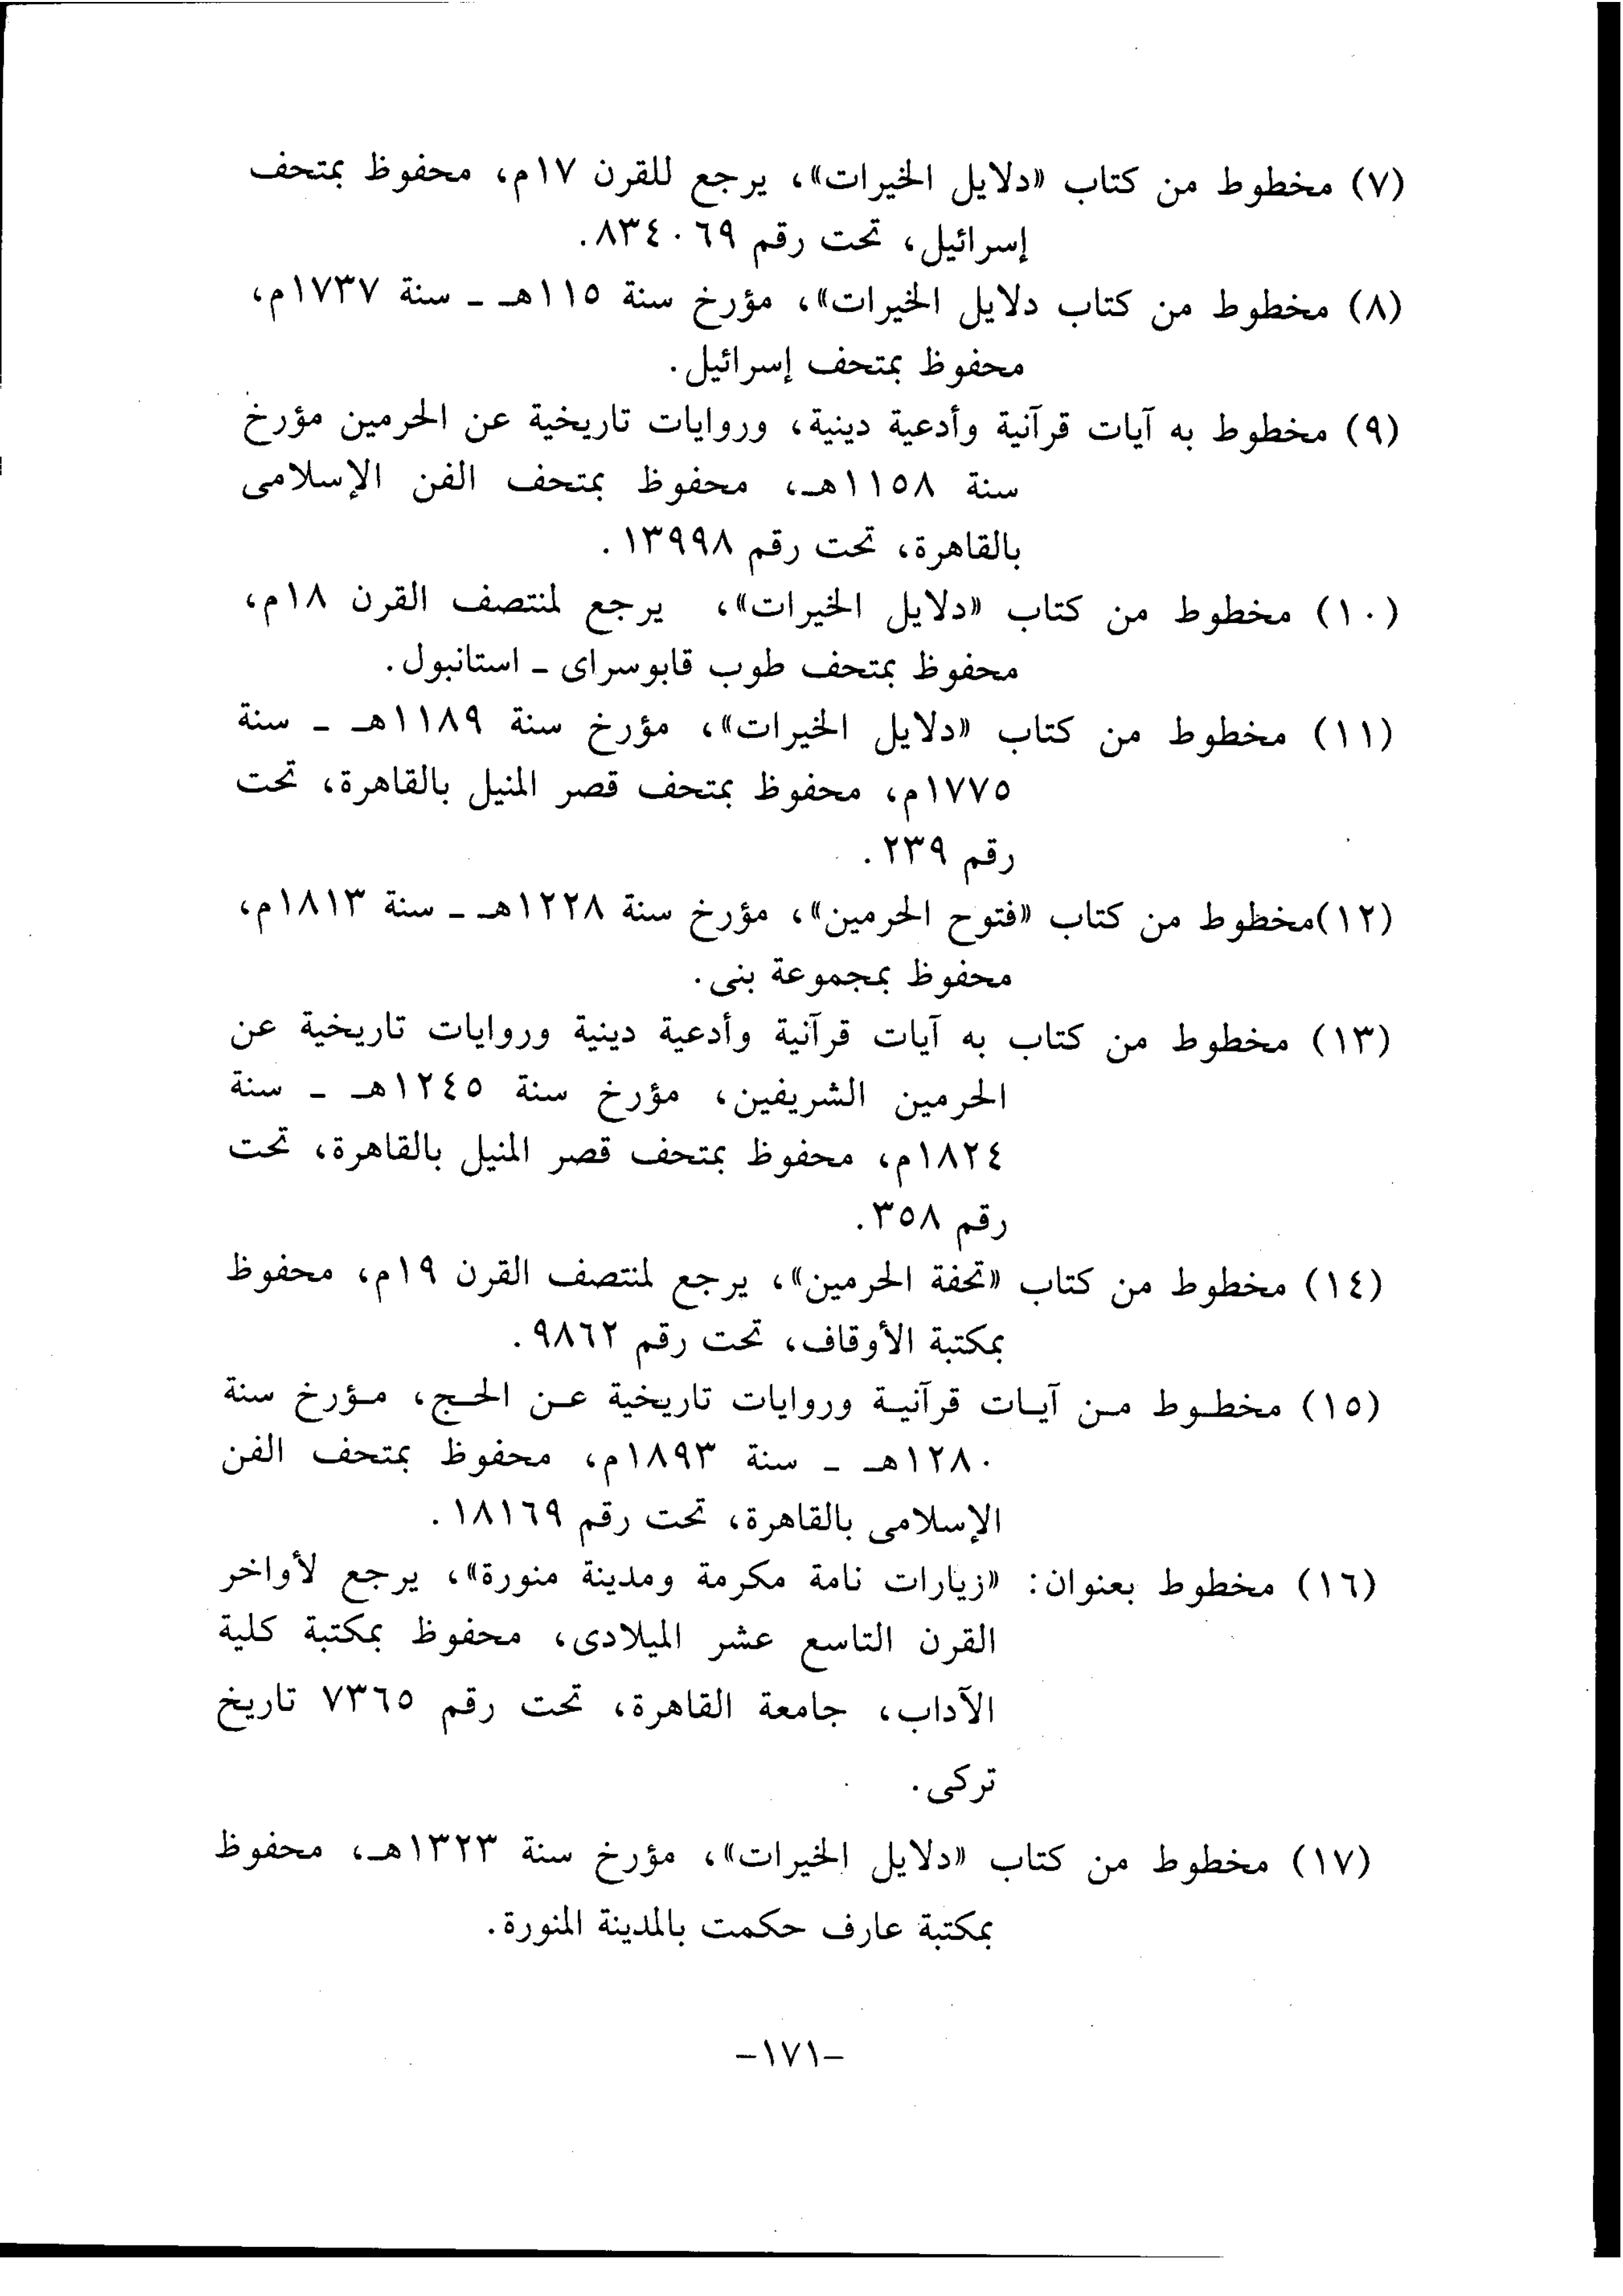 (٧) مخطوط من كتاب «دلايل الخيرات»، يرجع للقرن ١٧م، محفوظ بمتحف
إسرائيل، تحت رقم ٨٣٤٠٦٩.
(٨) مخطوط من كتاب دلايل الخيرات»، مؤرخ سنة ١١٥هـ - سنة ١٧٣٧م،
محفوظ بمتحف إسرائيل.
(٩) مخطوط به آيات قرآنية وأدعية دينية، وروايات تاريخية عن الحرمين مؤرخ
سنة ١١٥٨هـ، محفوظ بمتحف الفن الإسلامى
بالقاهرة، تحت رقم ١٣٩٩٨.
(١٠) مخطوط من كتاب «دلايل الخيرات»، يرجع لمنتصف القرن ١٨م،
محفوظ بمتحف طوب قابوسراى - استانبول.
(١١) مخطوط من كتاب «دلايل الخيرات»، مؤرخ سنة ١١٨٩هـ - سنة
١٧٧٥م، محفوظ بمتحف قصر المنيل بالقاهرة، تحت
رقم ٢٣٩.
(١٢)مخظوط من كتاب «فتوح الحرمين»، مؤرخ سنة ١٢٢٨هـ - سنة ١٨١٣م،
محفوظ بمجموعة بنى.
(١٣) مخطوط من كتاب به آيات قرآنية وأدعية دينية وروايات تاريخية عن
الحرمين الشريفين، مؤرخ سنة ١٢٤٥هـ - سنة
١٨٢٤م، محفوظ بمتحف قصر المنيل بالقاهرة، تحت
رقم ٣٥٨.
(١٤) مخطوط من كتاب «تحفة الحرمين»، يرجع لمنتصف القرن ١٩م، محفوظ
بمكتبة الأوقاف، تحت رقم ٩٨٦٢.
(١٥) مخطوط من آيات قرآنية وروايات تاريخية عن الحج، مؤرخ سنة
١٢٨٠هـ - سنة ١٨٩٣م، محفوظ بمتحف الفن
الإسلامى بالقاهرة، تحت رقم ١٨١٦٩.
(١٦) مخطوط بعنوان: «زيارات نامة مكرمة ومدينة منورة»، يرجع لأواخر
القرن التاسع عشر الميلادى، محفوظ بمكتبة كلية
الآداب، جامعة القاهرة، تحت رقم ٧٣٦٥ تاريخ
تركى.
(١٧) مخطوط من كتاب «دلايل الخيرات»، مؤرخ سنة ١٣٢٣هـ، محفوظ
بمكتبة عارف حكمت بالمدينة المنورة.
-١٧١-